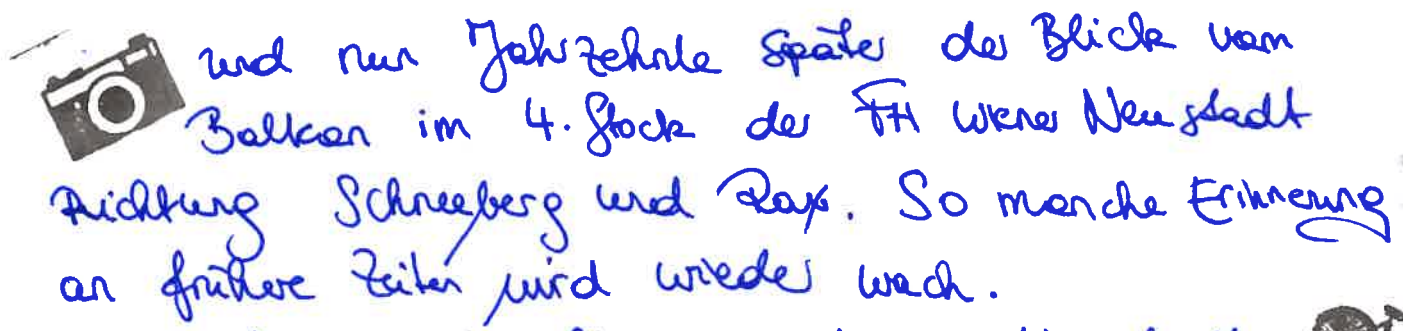 und nun Jahrzehnte später der Blick vom
Balkon im 4. Stock der FH Wiener Neustadt
Richtung Schneeberg und Rax. So manche Erinnerung
an frühere Zeiten wird wieder wach.